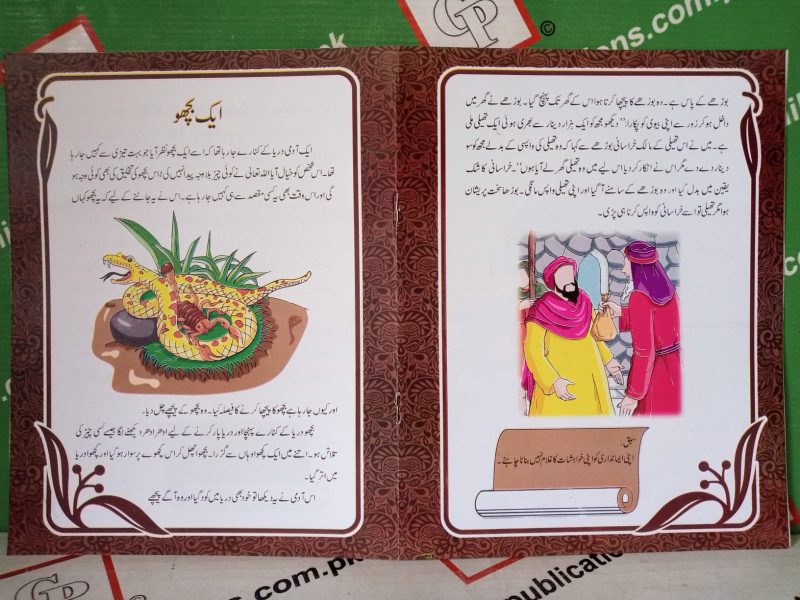 بوڑھے کے پاس ہے۔ وہ بوڑھے کا پیچھا کرتا ہوا اس کے گھر تک پہنچ گیا۔ بوڑھے نے گھر میں
داخل ہو کر زور سے اپنی بیوی کو پکارا: ’’دیکھو مجھ کو ایک ہزار دینار سے بھری ہوئی ایک تھیلی ملی
ہے۔ میں نے اس تھیلی کے مالک خراسانی بوڑھے سے کہا کہ وہ تھیلی کی واپسی کے بدلے مجھ کو سو
دینار دے دے مگر اس نے انکار کر دیا اس لیے میں وہ تھیلی گھر لے آیا ہوں‘‘۔ خراسانی کا شک
یقین میں بدل گیا اور وہ بوڑھے کے سامنے آ گیا اور اپنی تھیلی واپس مانگی۔ بوڑھا سخت پریشان
ہوا مگر تھیلی تو اسے خراسانی کو واپس کرنا ہی پڑی۔
سبق:
اپنی ایمانداری کو اپنی خواہشات کا غلام نہیں بنانا چاہئے۔
ایک بچھو
ایک آدمی دریا کے کنارے جا رہا تھا کہ اسے ایک بچھو نظر آیا جو بہت تیزی سے کہیں جا رہا
تھا۔ اس شخص کو خیال آیا اللہ تعالیٰ نے کوئی چیز بلاوجہ پیدا نہیں کی لہٰذا اس بچھو کی تخلیق کی بھی کوئی وجہ ہو
گی اور اس وقت بھی یہ کسی مقصد سے ہی کہیں جا رہا ہے۔ اس نے یہ جاننے کے لیے کہ یہ بچھو کہاں
اور کیوں جا رہا ہے بچھو کا پیچھا کرنے کا فیصلہ کیا۔ وہ بچھو کے پیچھے چل دیا۔
بچھو دریا کے کنارے پہنچا اور دریا پار کرنے کے لیے ادھر ادھر دیکھنے لگا جیسے کسی چیز کی
تلاش ہو۔ اتنے میں ایک کچھوا وہاں سے گزرا۔ بچھو اچھل کر اس کچھوے پر سوار ہو گیا اور کچھوا دریا
میں اتر گیا۔
اس آدمی نے یہ دیکھا تو خود بھی دریا میں کود گیا اور وہ آگے پیچھے
GP
©
.pk
ons.com.p
GP
com.pk
GP
publication